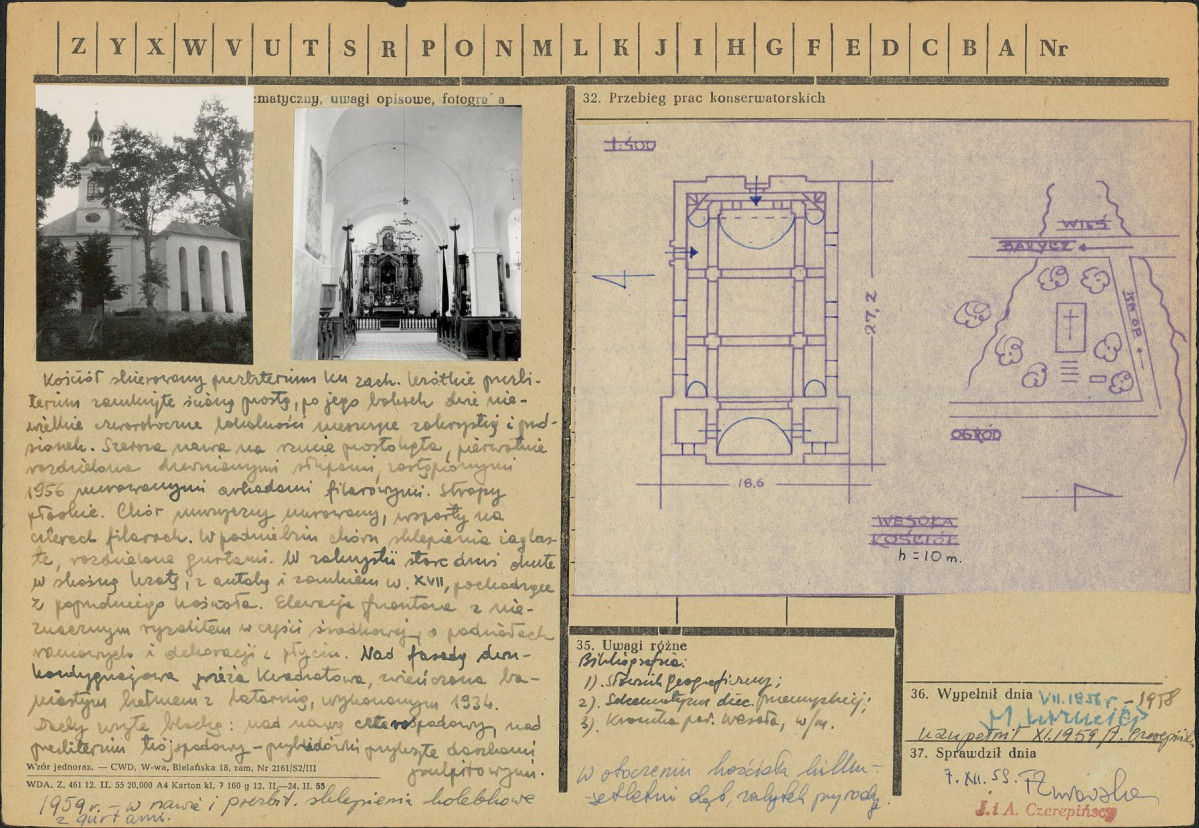 Z Y X W V U T S R P O N M L K J I H G F E D C B A Nr
ematyczny, uwagi opisowe, fotografia
Kościół skierowany prezbiterium ku zach. Krótkie prezbi-
terium zamknięte ścianą prostą, po jego bokach dwie nie-
wielkie czworoboczne lokalności mieszczące zakrystię i przed-
sionek. Szeroka nawa na rzucie prostokąta, pierwotnie
rozdzielona drewnianymi słupami, zastąpionymi
1956 murowanymi arkadami filarowymi. Stropy
płaskie. Chór muzyczny murowany, wsparty na
czterech filarach. W podniebiu chóru sklepienia żaglas-
te, rozdzielone gurtami. W zakrystii stare drzwi okute
w skośną kratę, z antabą i zamkiem w. XVII, pochodzące
z poprzedniego kościoła. Elewacja frontowa z nie-
znacznym ryzalitem w części środkowej, o podziałach
ramowych i dekoracji z płycin. Nad fasadą dwu-
kondygnacjowa wieża kwadratowa, wieńczona ba-
niastym hełmem z latarnią, wykonanym 1934.
Dachy kryte blachą: nad nawą czterospadowy, nad
prezbiterium trójspadowy – przybudówki przykryte daszkami
pulpitowymi.
Wzór jednoraz. — CWD, W-wa, Bielańska 18, zam. Nr 2161/S2/III
WDA. Z. 461 12. II. 55 20,000 A4 Karton kl. 7 160 g 12. II.—24. II. 55
1959 r. – w nawie i prezbit. sklepienia kolebkowe
z gurtami.
32. Przebieg prac konserwatorskich
1:500
27,2
18,6
WESOŁA
KOŚCIÓŁ
h = 10 m.
WIEŚ
BARYCZ
OGRÓD
35. Uwagi różne
Bibliografia:
1). Słownik geograficzny;
2). Schematyzm diec. przemyskiej;
3). Kronika par. Wesoła, w/m.
W otoczeniu kościoła kilku-
setletni dąb, zabytek przyrody.
36. Wypełnił dnia VII. 1956 r. – 1958
uzupełnił XI. 1959 A. Czerepiński
37. Sprawdził dnia
7. XII. 59.
J. i A. Czerepińscy